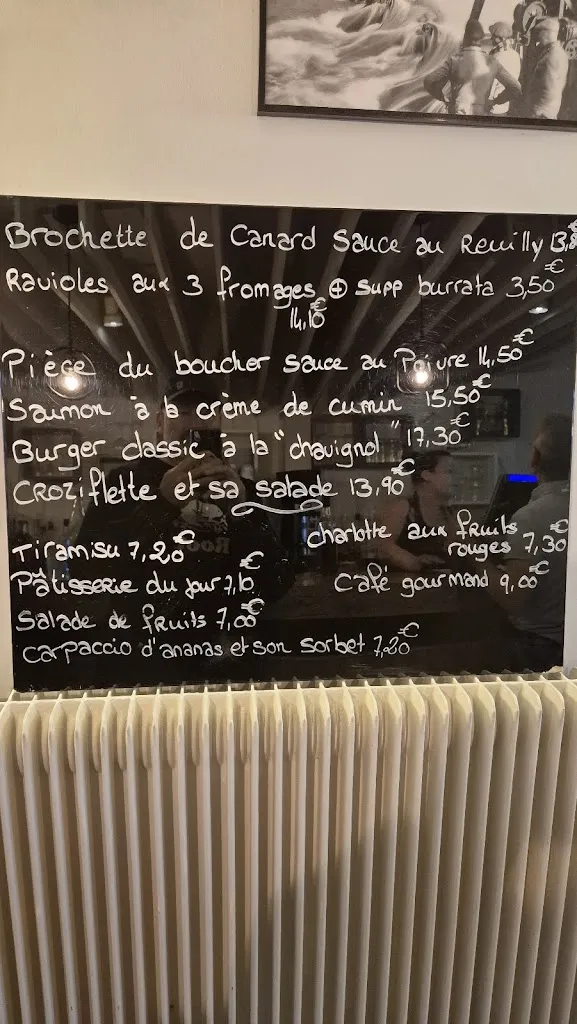 Brochette de Canard Sauce au Reuilly 13,
Ravioles aux 3 fromages ⊕ supp burrata 3,50€
14,10€
Pièce du boucher sauce au Poivre 14,50€
Saumon à la crème de cumin 15,50€
Burger classic à la "chavignol" 17,30€
CROZiflette et sa salade 13,90€
Tiramisu 7,20€
charlotte aux fruits rouges 7,30€
Pâtisserie du jour 7,10€
Café gourmand 9,00€
Salade de fruits 7,00€
Carpaccio d'ananas et son sorbet 7,20€